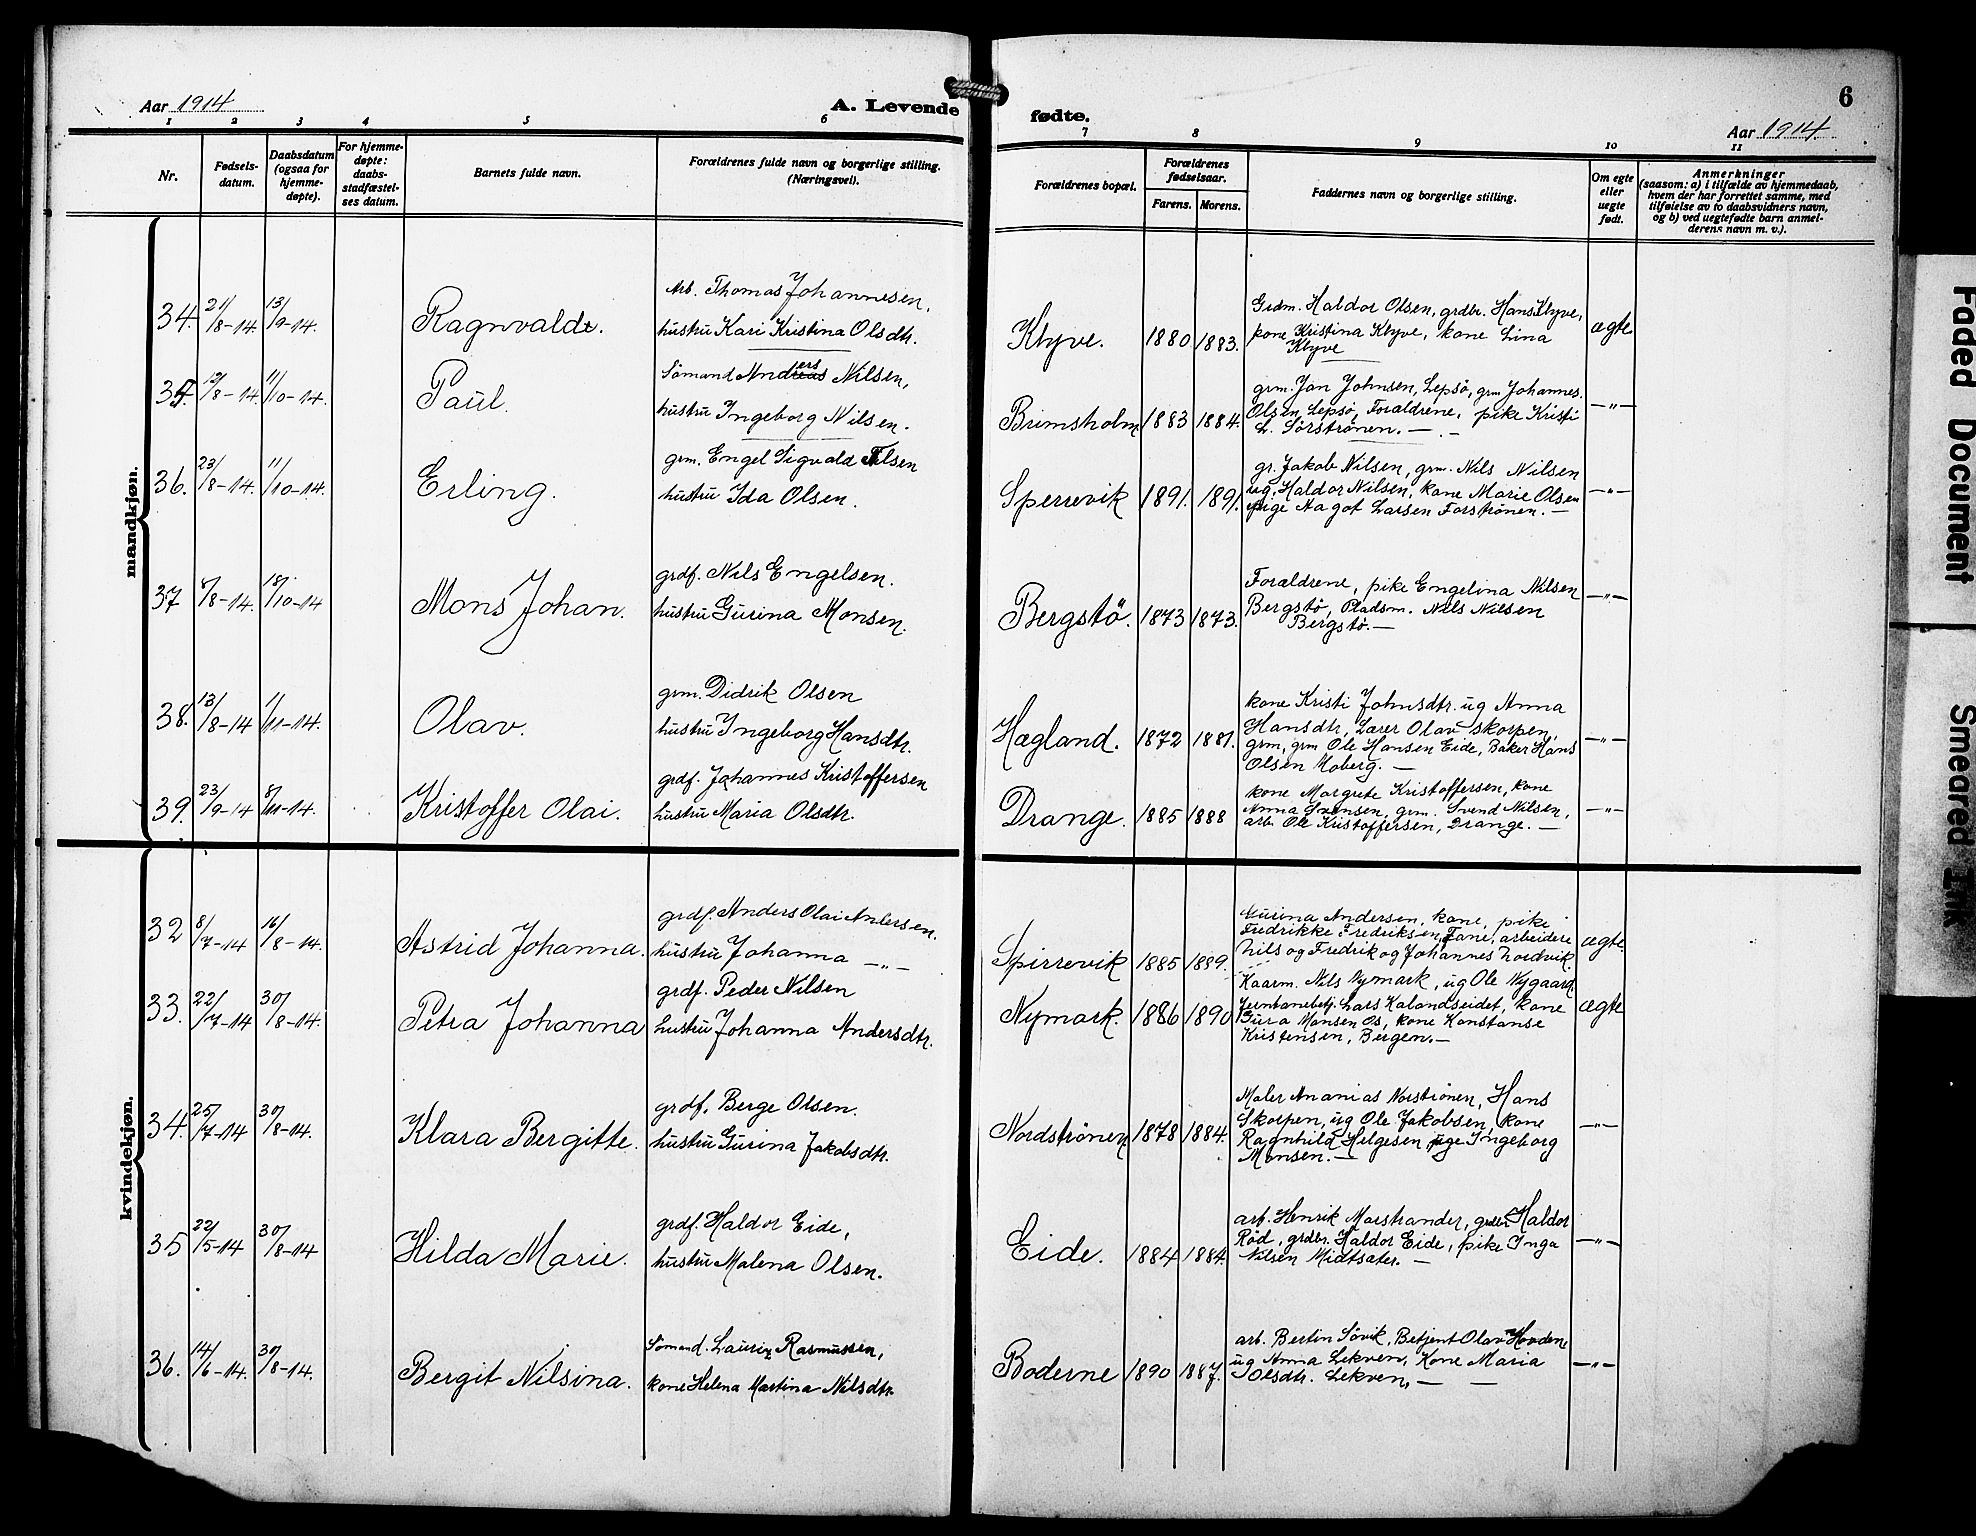 Aar 1914
A. Levende
fødte.
6
Aar 1914
1 2 3 4 5 6 7 8 9 10 11
Nr.
Fødsels-
datum.
Daabsdatum
(ogsaa for
hjemme-
døpte).
For hjemme-
døpte:
daabs-
stadfæstel-
ses datum.
Barnets fulde navn.
Forældrenes fulde navn og borgerlige stilling.
(Næringsvei).
Forældrenes bopæl.
Forældrenes
fødselsaar.
Farens. Morens.
Faddernes navn og borgerlige stilling.
Om egte
eller
uegte
født.
Anmerkninger
(saasom: a) i tilfælde av hjemmedaab,
hvem der har forrettet samme, med
tilføielse av to daabsvidners navn,
og b) ved uegtefødte barn anmel-
derens navn m. v.).
mandkjøn.
34. 21/8-14. 13/9-14. Ragnvald.
Arb. Thomas Johannesen,
hustru Kari Kristina Olsdtr.
Klyve. 1880 1883.
Grdm. Haldor Olsen, grdbr. Hans Klyve,
kone Kristina Klyve, kone Lina
Klyve
ægte
35. 12/8-14 11/10-14. Paul.
Sömand Anders Nilsen,
hustru Ingeborg Nilsen.
Brimsholm 1883 1884.
grm. Jan Johnsen, Lepsö, grm Johannes
Olsen, Lepsö, Foraldrene, pike Kristi
L. Sörströnen. —
—"—
36. 23/8-14. 11/10-14. Erling.
grm. Engel Sigvald Olsen
hustru Ida Olsen.
Sperrevik 1891. 1891.
gr. Jakob Nilsen, grm. Nils Nilsen
ug. Haldor Nilsen, kone Marie Olsen
pige Aagot Larsen Forströnen. —
—"—
37 8/8-14. 18/10-14 Mons Johan.
grdf. Nils Engelsen.
hustru Gurina Monsen.
Bergstö. 1873 1873.
Forældrene, pike Engelina Nilsen
Bergstö, Pladsm. Nils Nilsen
Bergstö. —
—"—
38. 13/8-14 1/11-14. Olav.
grm. Didrik Olsen
hustru Ingeborg Hansdtr.
Hægland. 1872 1881.
kone Kristi Johnsdtr. ug Anna
Hansdtr, Lærer Olav Skorpen,
grm, grm Ole Hansen Eide, Baker Hans
Olsen Moberg. —
—"—
39. 23/9-14 8/11-14. Kristoffer Olai.
grdf. Johannes Kristoffersen
hustru Maria Olsdtr.
Drange. 1885 1888
kone Margrete Kristoffersen, kone
Anna Svensen, grm. Svend Nilsen,
arb. Ole Kristoffersen, Drange. —
—"—
kvindekjøn.
32 8/7-14 16/8-14. Astrid Johanna.
grdf. Anders Olai Andersen.
hustru Johanna —"—
Spirrevik 1885 1889.
Gurina Andersen, kone, pike
Fredrikke Fredriksen, Fane, arbeidere
Nils og Fredrik og Johannes Nordvik.
ægte
33. 22/7-14 30/8-14. Petra Johanna
grdf. Peder Nilsen
hustru Johanna Andersdtr.
Nymark. 1886 1890
Kaarm. Nils Nymark, ug Ole Nygaard.
Jernbanebetj. Lars Kalandseidet, kone
Gura Monsen Os, kone Konstanse
Kristensen, Bergen. —
ægte
34. 25/7-14 30/8-14. Klara Bergitte.
grdf. Berge Olsen.
hustru Gurina Jakobsdtr.
Nordströnen 1878 1884.
Maler Ananias Norströnen, Hans
Skorpen, ug Ole Jakobsen, kone
Ragnhild Helgesen pige Ingeborg
Monsen. —
—"—
35 22/5-14 30/8-14 Hilda Marie.
grdf. Haldor Eide,
hustru Malena Olsen.
Eide. 1884 1884.
arb. Henrik Marstrander, grdbr. Haldor
Röd, grdbr. Haldor Eide, pike Inga
Nilsen Midtsæter. —
—"—
36. 14/6-14. 30/8-14. Bergit Nilsina.
Sömand. Lauriz Rasmussen,
kone Helena Martina Nilsdtr.
Boderne 1890 1887.
arb. Bertin Sövik, Betjent Olav Hovden
ug Anna Lekven, Kone Maria
Olsdtr. Lekven, — —
—"—
Faded Document
Smeared Ink